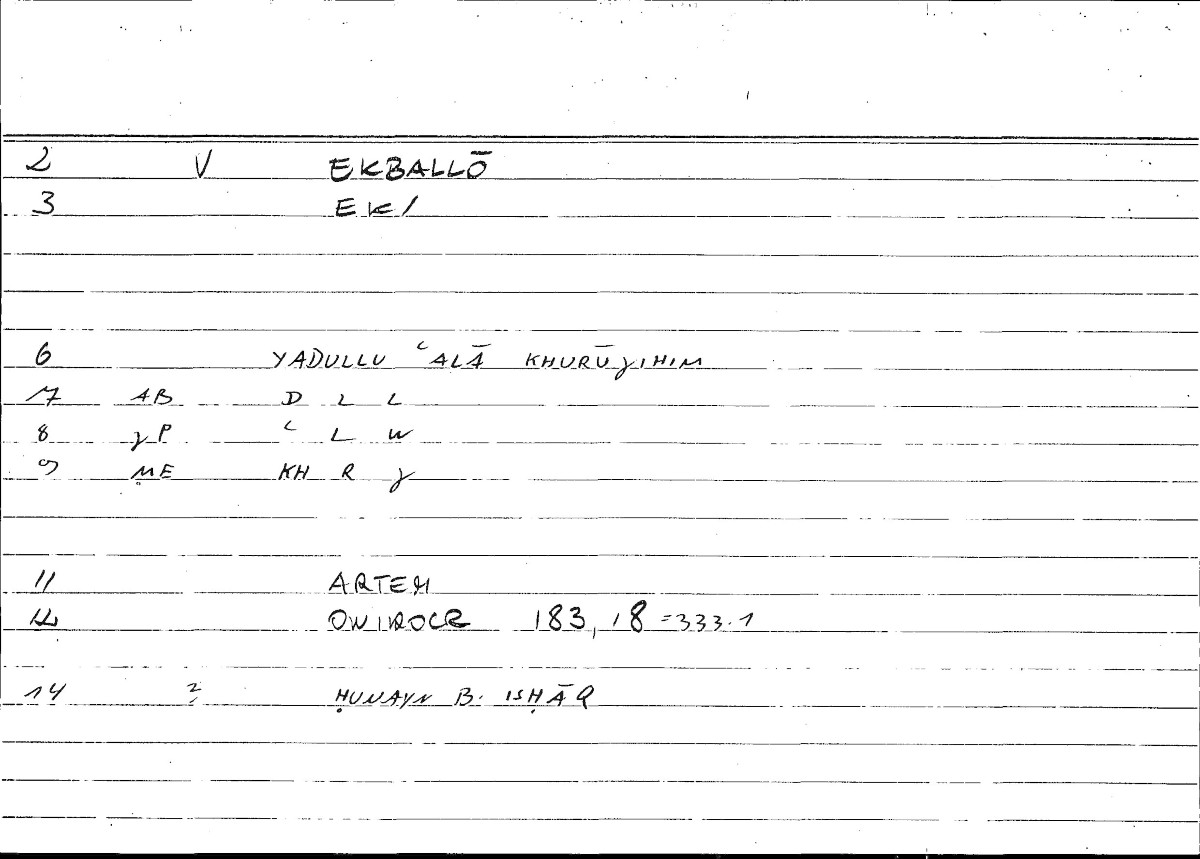 2 V EKBALLŌ
3 EK/
6 YADULLU ʿALĀ KHURŪJIHIM
7 AB D L L
8 JP ʿ L W
9 ṂE KH R J
11 ARTEM
12 ONIROCR 183,18 =333.1
14 2 ḤUNAYN B. ISḤĀQ